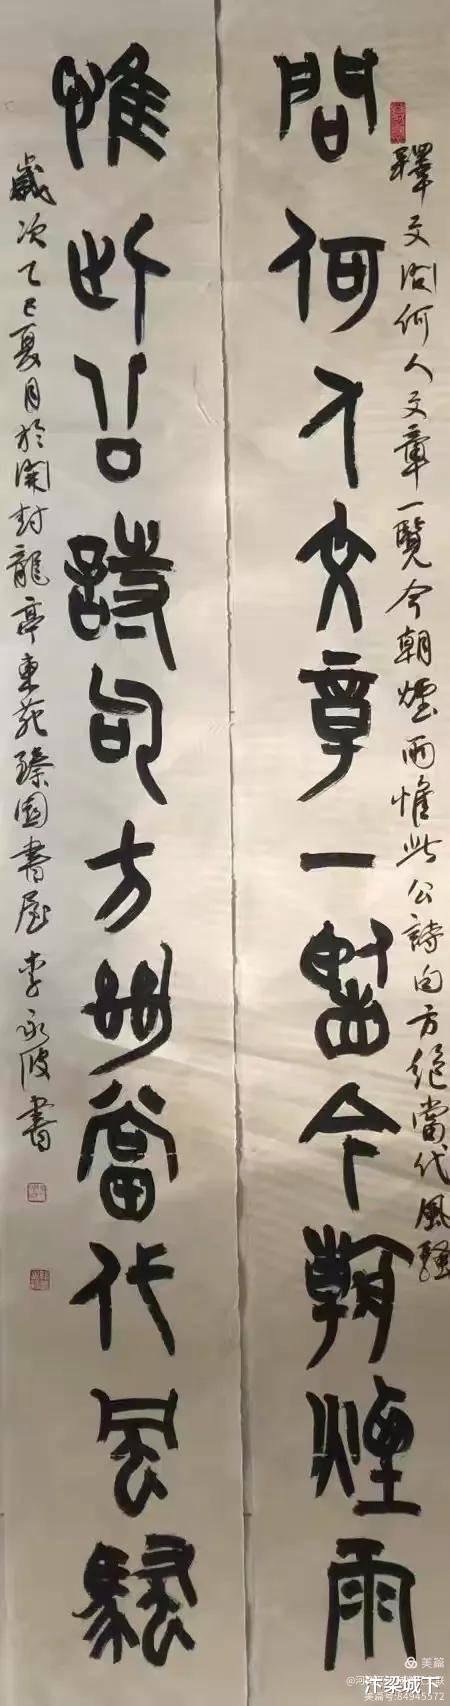 釋文問何人文章一覽今朝煙雨惟此公詩句方絕當代風騷
問何人文章一覽今朝煙雨
惟此公詩句方絕當代風騷
歲次乙巳夏月於開封龍亭東苑臻園書屋李永波書
美篇
美篇号:84945572
汴梁城下